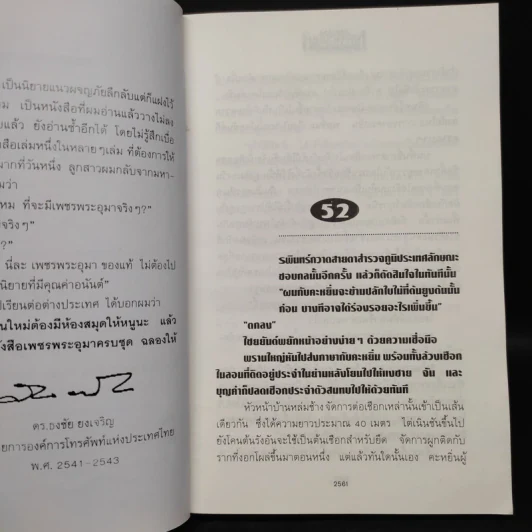 เป็นนิยายแนวผจญภัยลึกลับแต่ก็แฝงไว้
เป็นหนังสือที่ผมอ่านแล้ววางไม่ลง
แล้ว ยังอ่านซ้ำอีกได้ โดยไม่รู้สึกเบื่อ
สือเล่มหนึ่งในหลายๆเล่ม ที่ต้องการให้
มากที่วันหนึ่ง ลูกสาวผมกลับจากมหา-
มว่า
หม ที่จะมีเพชรพระอุมาจริงๆ?"
จริงๆ"
?"
นี่ละ เพชรพระอุมา ของแท้ ไม่ต้องไป
นิยายที่มีคุณค่าอนันต์"
ปเรียนต่อต่างประเทศ ได้บอกผมว่า
นใหม่ต้องมีห้องสมุดให้หนูนะ แล้ว
ังสือเพชรพระอุมาครบชุด ฉลองให้
ดร.ธงชัย ยงเจริญ
ยการองค์การโทรศัพท์แห่งประเทศไทย
พ.ศ. 2541-2543
52
รพินทร์กวาดสายตาสำรวจภูมิประเทศลักษณะ
ชอบกลนั้นอีกครั้ง แล้วก็ตัดสินใจในทันทีนั้น
"ผมกับคะหยิ่นจะข้ามปลักไปไม่ที่ต้นยูงต้นนั้น
ก่อน บางทีอาจได้ร่องรอยอะไรเพิ่มขึ้น"
"ตกลง"
ไชยยันต์พยักหน้าอย่างง่ายๆ ด้วยความเชื่อมือ
พรานใหญ่หันไปส่งภาษากับคะหยิ่น พร้อมทั้งล้วงเชือก
ไนลอนที่ติดอยู่ประจำในย่ามหลังโยนไปให้แงซาย จัน และ
บุญคำก็ปลดเชือกประจำตัวสมทบไปให้ด้วยทันที
หัวหน้าบ้านหล่มช้าง จัดการต่อเชือกเหล่านั้นเข้าเป็นเส้น
เดียวกัน ซึ่งได้ความยาวประมาณ 40 เมตร ไต่เนินชันขึ้นไป
ยังโคนต้นรังอันจะใช้เป็นต้นเชือกสำหรับยึด จัดการผูกติดกับ
รากที่งอกโผล่ขึ้นมาตอนหนึ่ง แต่แล้วทันใดนั้นเอง คะหยิ่นผู้
2561